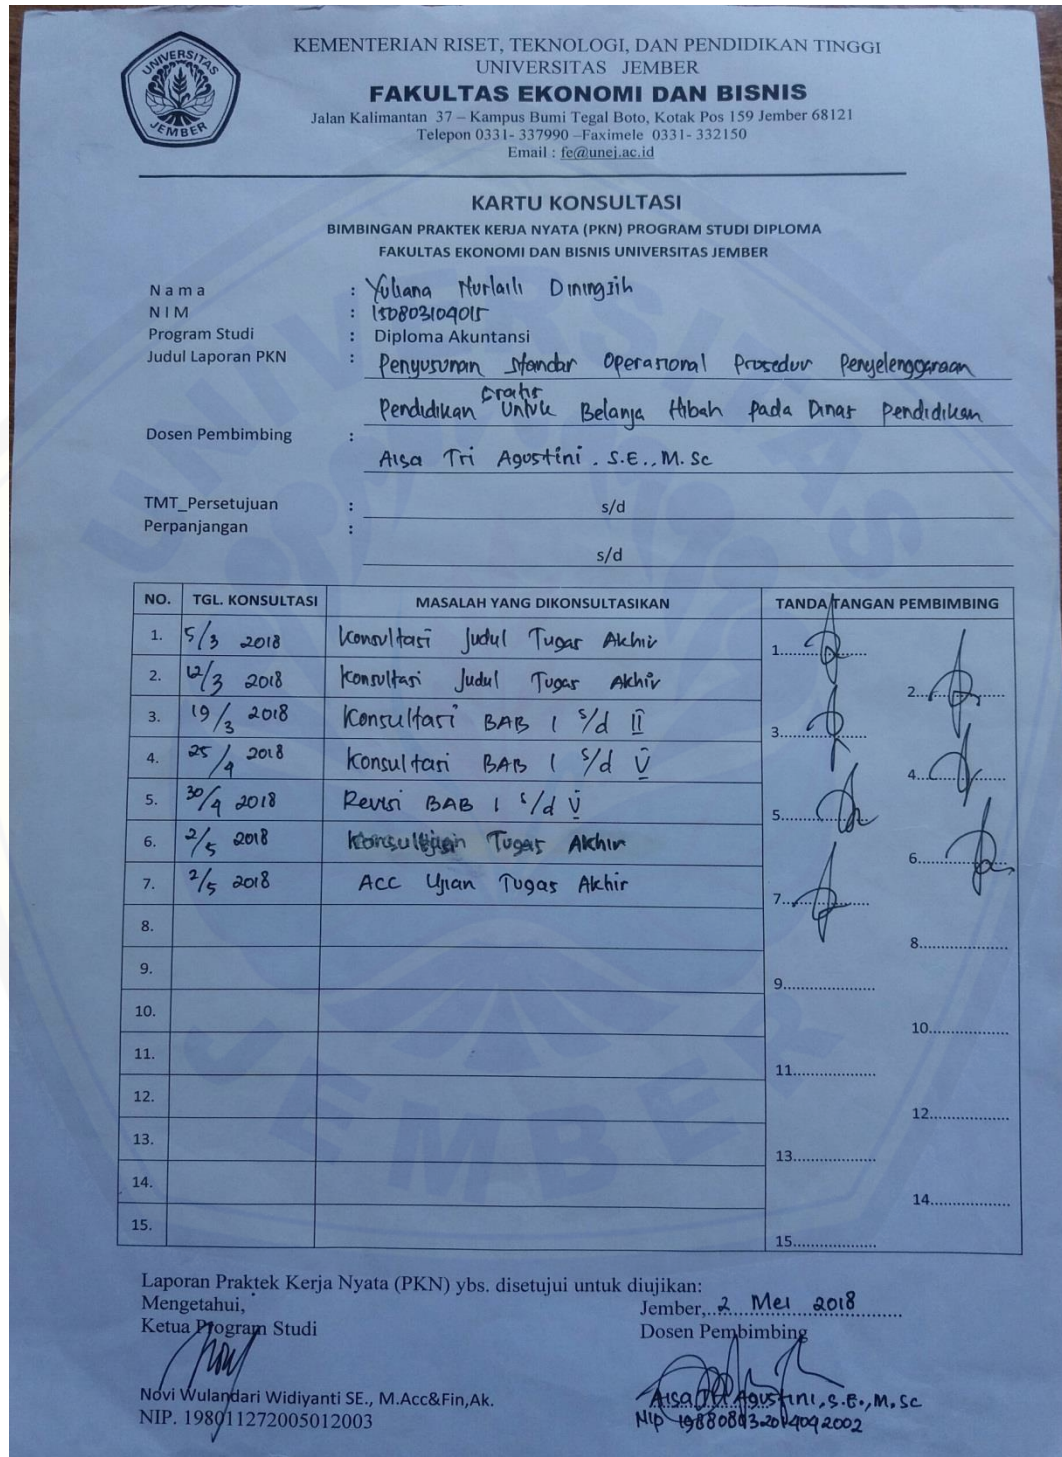 UNIVERSITAS
JEMBER
KEMENTERIAN RISET, TEKNOLOGI, DAN PENDIDIKAN TINGGI
UNIVERSITAS JEMBER
FAKULTAS EKONOMI DAN BISNIS
Jalan Kalimantan 37 – Kampus Bumi Tegal Boto, Kotak Pos 159 Jember 68121
Telepon 0331- 337990 –Faximele 0331- 332150
Email : fe@unej.ac.id
KARTU KONSULTASI
BIMBINGAN PRAKTEK KERJA NYATA (PKN) PROGRAM STUDI DIPLOMA
FAKULTAS EKONOMI DAN BISNIS UNIVERSITAS JEMBER
N a m a : Yuliana Nurlaili Diningsih
N I M : 150803104015
Program Studi : Diploma Akuntansi
Judul Laporan PKN : Penyusunan Standar Operasional Prosedur Penyelenggaraan
Gratis
Pendidikan Untuk Belanja Hibah pada Dinas Pendidikan
Dosen Pembimbing :
Aisa Tri Agustini . S.E., M. Sc
TMT_Persetujuan : s/d
Perpanjangan :
s/d
NO. TGL. KONSULTASI MASALAH YANG DIKONSULTASIKAN TANDA TANGAN PEMBIMBING
1. 5/3 2018 Konsultasi Judul Tugas Akhir 1..................
2. 12/3 2018 Konsultasi Judul Tugas Akhir 2..................
3. 19/3 2018 Konsultasi BAB I s/d II 3..................
4. 25/4 2018 Konsultasi BAB I s/d V 4..................
5. 30/4 2018 Revisi BAB I s/d V 5..................
6. 2/5 2018 Tugas Akhir 6..................
7. 2/5 2018 Acc Ujian Tugas Akhir 7..................
8. 8..................
9. 9..................
10. 10..................
11. 11..................
12. 12..................
13. 13..................
14. 14..................
15. 15..................
Laporan Praktek Kerja Nyata (PKN) ybs. disetujui untuk diujikan:
Mengetahui, Jember, 2 Mei 2018
Ketua Program Studi Dosen Pembimbing
Novi Wulandari Widiyanti SE., M.Acc&Fin,Ak. Aisa Tri Agustini, S.E., M. Sc
NIP. 198011272005012003 NIP 198808032014042002
UNIVERSITAS
JEMBER